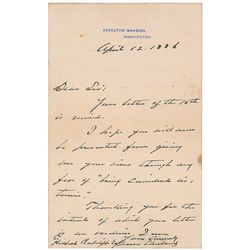 EXECUTIVE MANSION,
WASHINGTON.
April 12. 1886
Dear Sir:
Your letter of the 10th
is received.
I hope you will never
be prevented from giving
me your views through any
fear of "being considered
Thanking you for the
interests of which your letter
is an evidence I am
Yours